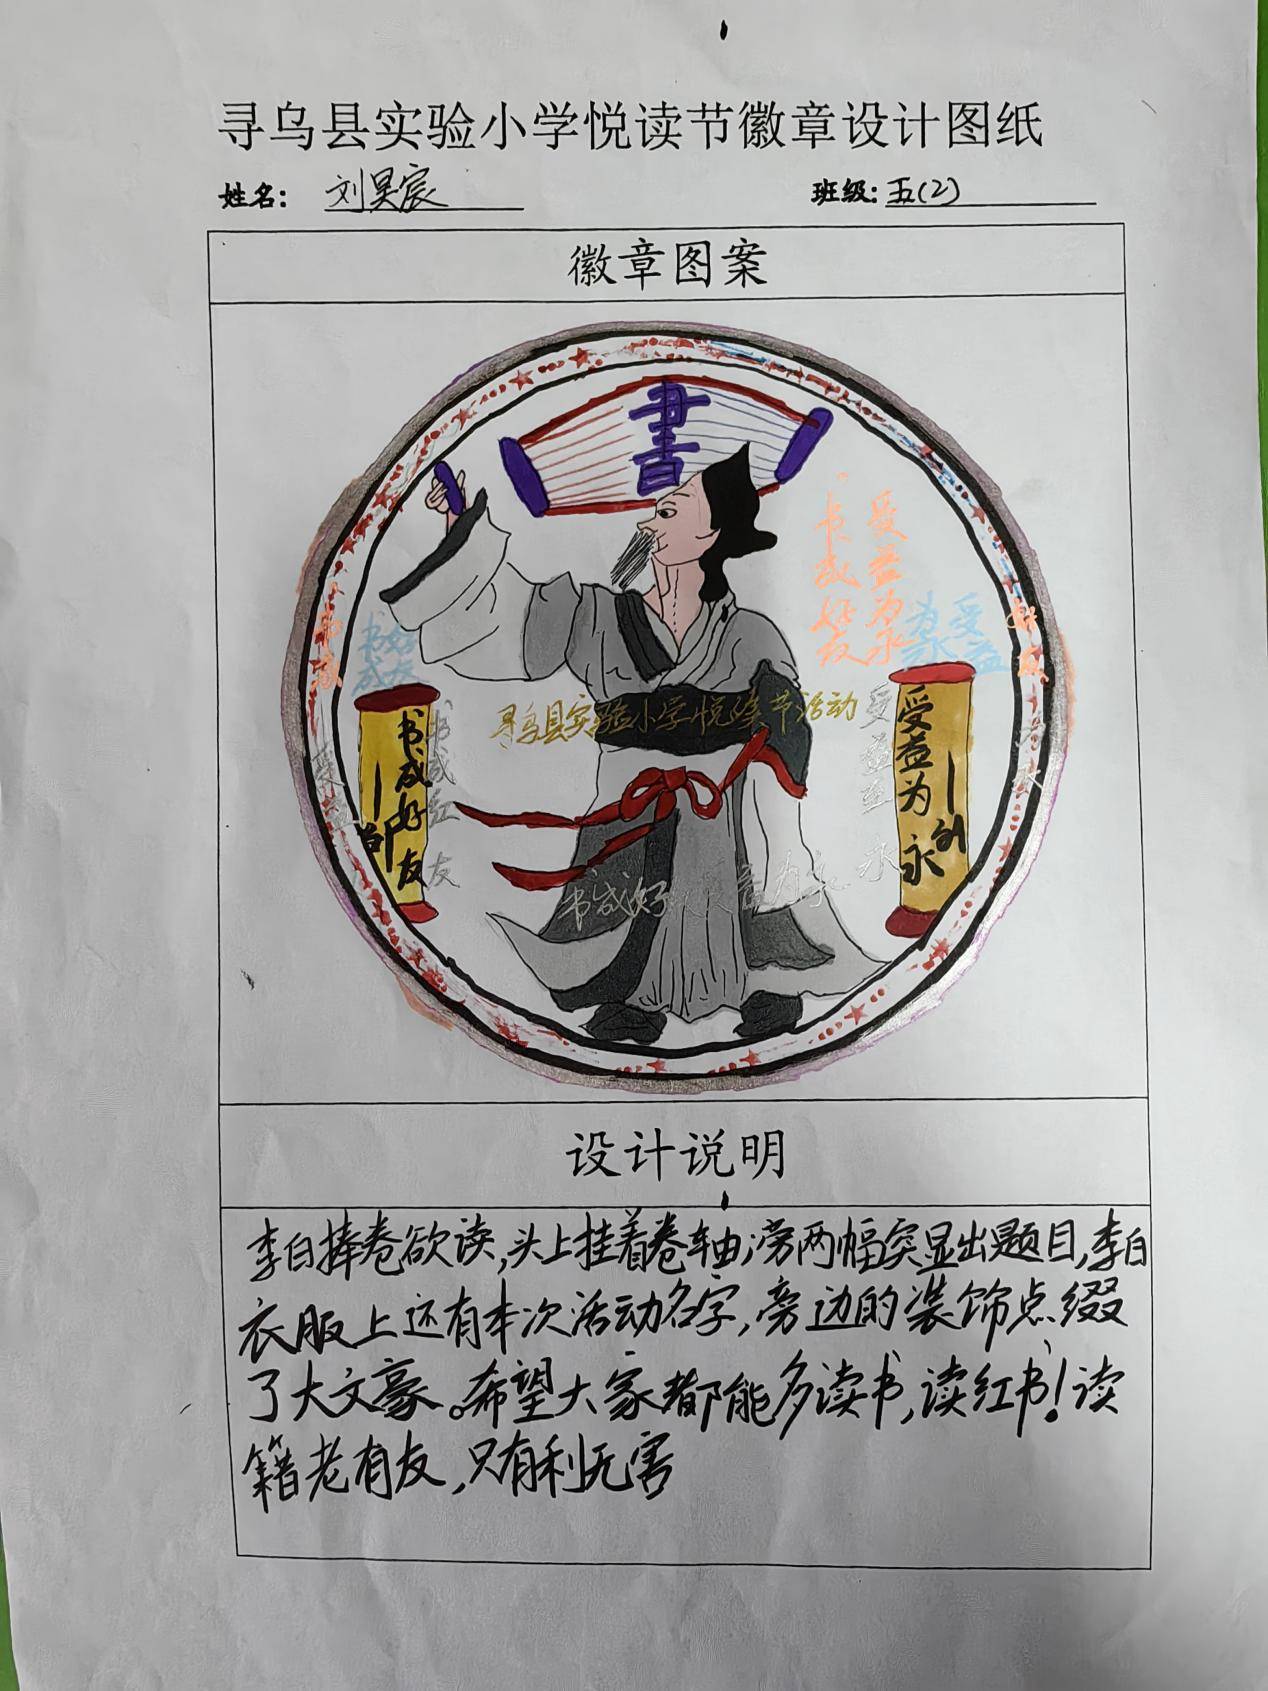 寻乌县实验小学悦读节徽章设计图纸
姓名：刘昊宸
班级：五(2)
徽章图案
書
书成好友
受益为永
书成
好友
书成好友
受益为永
书成好友
受益为永
受益
为永
寻乌县实验小学悦读节活动
书成好友
受益
书成好友受益为永
设计说明
李白捧卷欲读，头上挂着卷轴，旁两幅突显出题目，李白
衣服上还有本次活动名字，旁边的装饰点缀
了大文豪。希望大家都能多读书，读红书！读
籍老有友，只有利无害